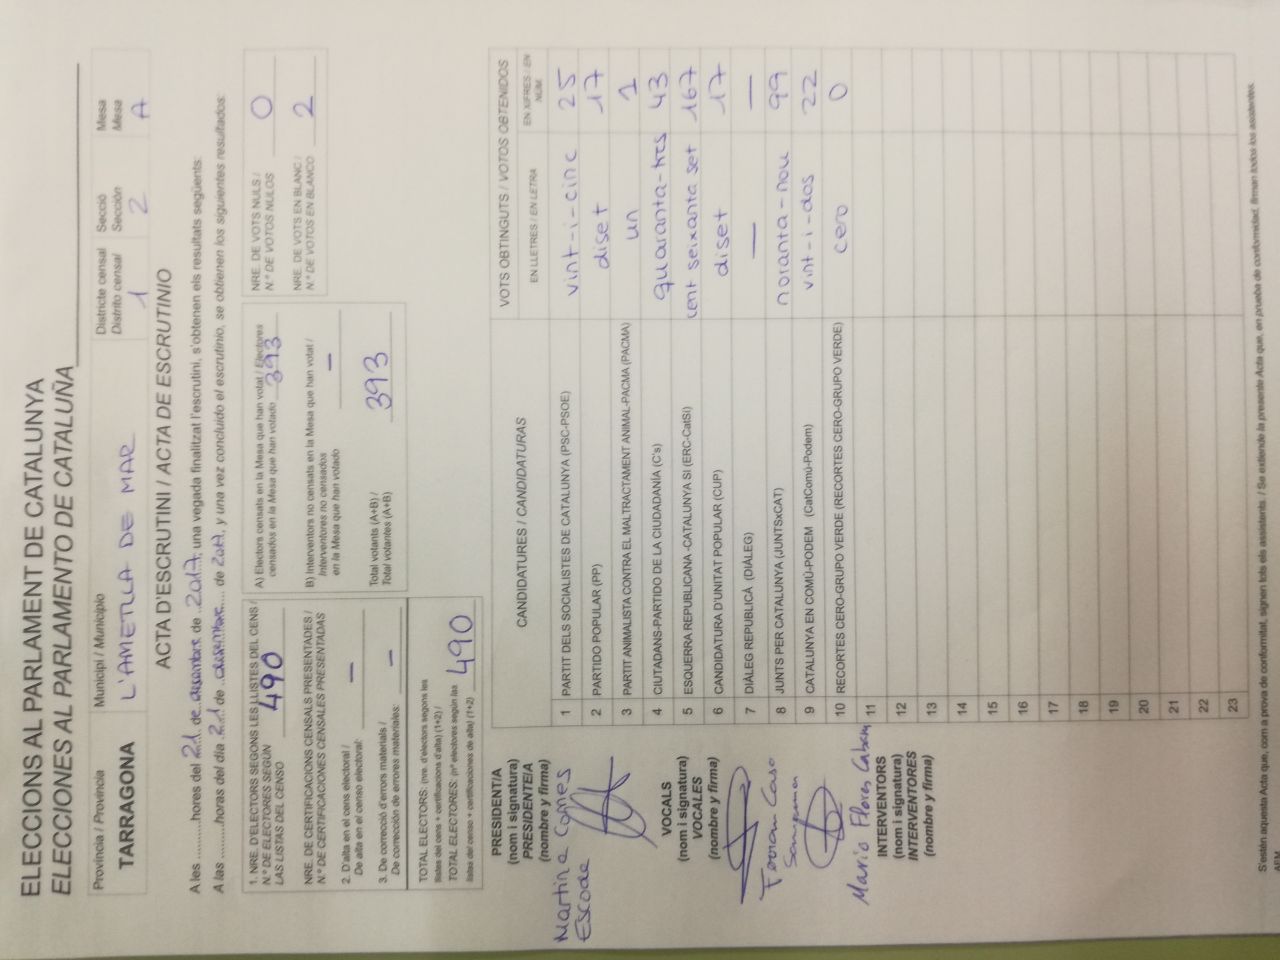 ELECCIONS AL PARLAMENT DE CATALUNYA
ELECCIONES AL PARLAMENTO DE CATALUÑA
Província / Provincia
TARRAGONA
Municipi / Municipio
L'AMETLLA DE MAR
Districte censal
Distrito censal
1
Secció
Sección
2
Mesa
Mesa
A
ACTA D'ESCRUTINI / ACTA DE ESCRUTINIO
A les .........hores del 21 de desembre de 2017, una vegada finalitzat l'escrutini, s'obtenen els resultats següents:
A las .........horas del día 21 de desembre de 2017, y una vez concluido el escrutinio, se obtienen los siguientes resultados:
1. NRE. D'ELECTORS SEGONS LES LLISTES DEL CENS /
N.º DE ELECTORES SEGÚN
LAS LISTAS DEL CENSO 490
NRE. DE CERTIFICACIONS CENSALS PRESENTADES /
N.º DE CERTIFICACIONES CENSALES PRESENTADAS
2. D'alta en el cens electoral /
De alta en el censo electoral: —
3. De correcció d'errors materials /
De corrección de errores materiales: —
TOTAL ELECTORS: (nre. d'electors segons les
llistes del cens + certificacions d'alta) (1+2) /
TOTAL ELECTORES: (nº electores según las
listas del censo + certificaciones de alta) (1+2) 490
A) Electors censats en la Mesa que han votat / Electores
censados en la Mesa que han votado 393
B) Interventors no censats en la Mesa que han votat /
Interventores no censados
en la Mesa que han votado —
Total votants (A+B) /
Total votantes (A+B) 393
NRE. DE VOTS NULS /
N.º DE VOTOS NULOS 0
NRE. DE VOTS EN BLANC /
N.º DE VOTOS EN BLANCO 2
PRESIDENT/A
(nom i signatura)
PRESIDENTE/A
(nombre y firma)
Martina Comes
Escoda
VOCALS
(nom i signatura)
VOCALES
(nombre y firma)
Ferran Caso
Mario Flores
INTERVENTORS
(nom i signatura)
INTERVENTORES
(nombre y firma)
CANDIDATURES / CANDIDATURAS
VOTS OBTINGUTS / VOTOS OBTENIDOS
EN LLETRES / EN LETRA
EN XIFRES / EN
NÚM.
1 PARTIT DELS SOCIALISTES DE CATALUNYA (PSC-PSOE) vint-i-cinc 25
2 PARTIDO POPULAR (PP) diset 17
3 PARTIT ANIMALISTA CONTRA EL MALTRACTAMENT ANIMAL-PACMA (PACMA) un 1
4 CIUTADANS-PARTIDO DE LA CIUDADANÍA (C's) quaranta-tres 43
5 ESQUERRA REPUBLICANA -CATALUNYA SÍ (ERC-CatSí) cent seixanta set 167
6 CANDIDATURA D'UNITAT POPULAR (CUP) diset 17
7 DIÀLEG REPUBLICÀ (DIÀLEG) — —
8 JUNTS PER CATALUNYA (JUNTSxCAT) noranta-nou 99
9 CATALUNYA EN COMÚ-PODEM (CatComú-Podem) vint-i-dos 22
10 RECORTES CERO-GRUPO VERDE (RECORTES CERO-GRUPO VERDE) cero 0
11
12
13
14
15
16
17
18
19
20
21
22
23
S'estén aquesta Acta que, com a prova de conformitat, signen tots els assistents. / Se extiende la presente Acta que, en prueba de conformidad, firman todos los asistentes.